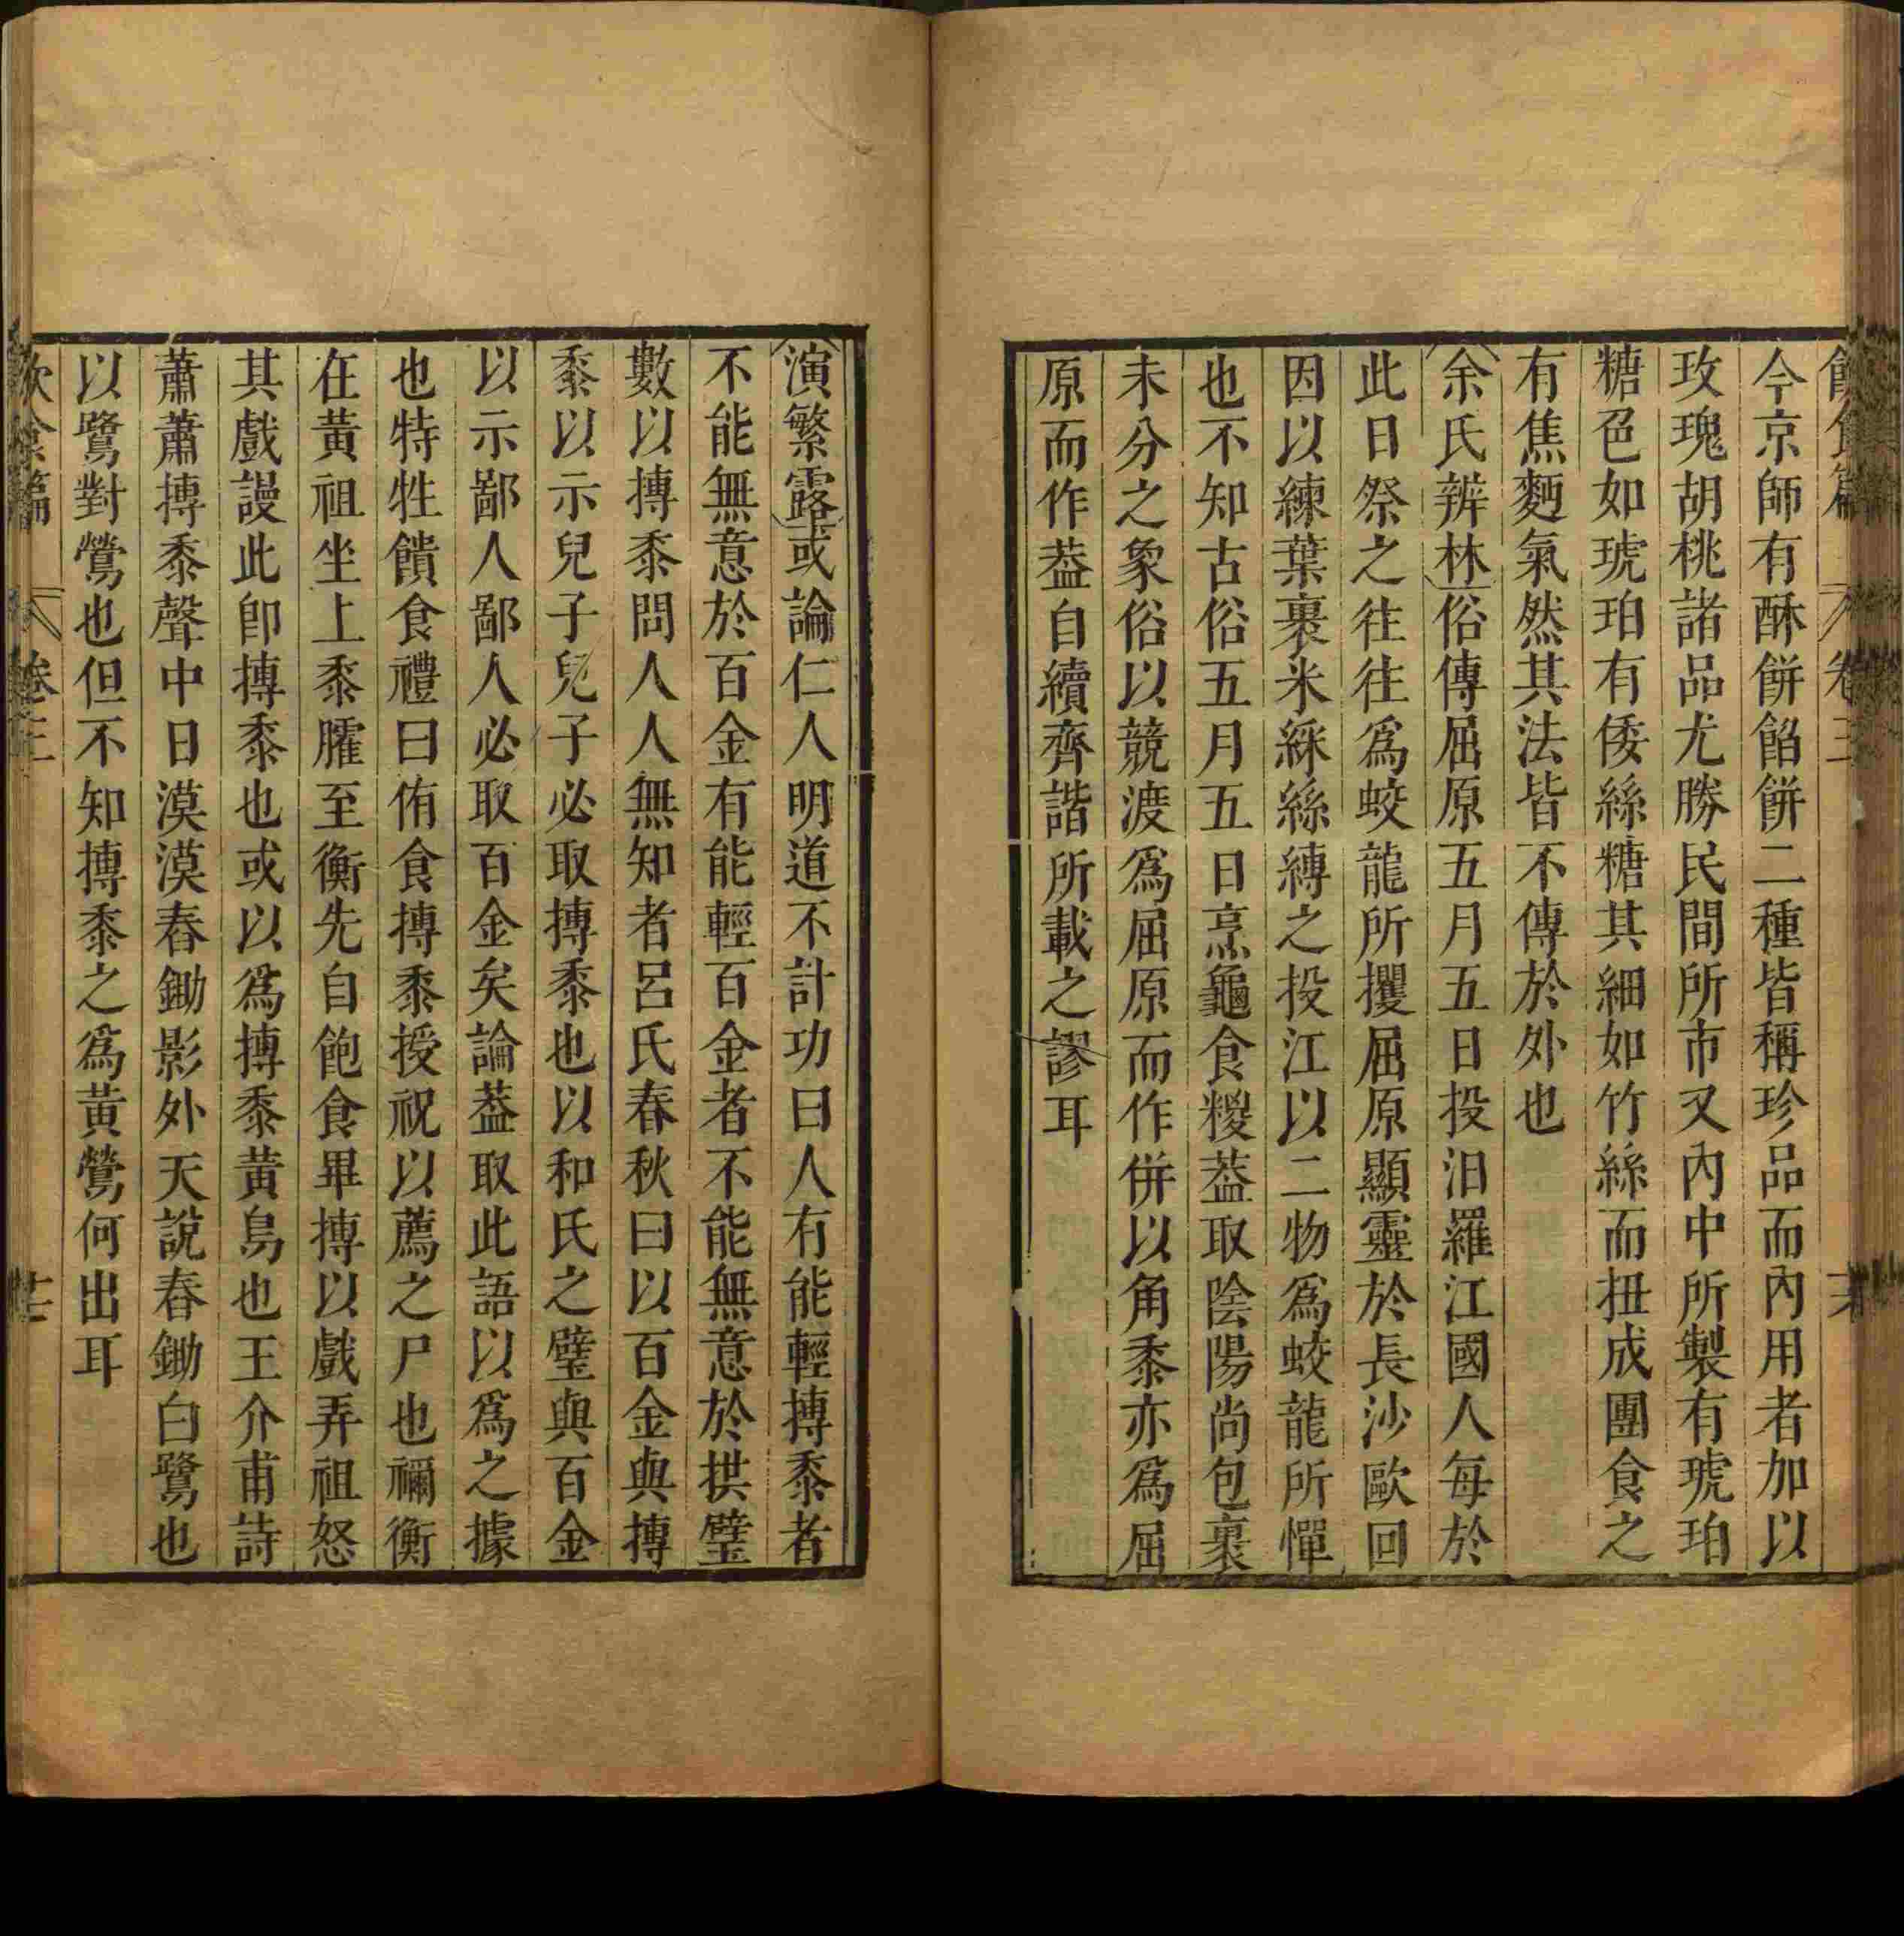 今京師有酥餅餡餅二種皆稱珍品而內用者加以
玫瑰胡桃諸品尤勝民間所市又內中所製有琥珀
糖色如琥珀有倭絲糖其細如竹絲而扭成團食之
有焦麪氣然其法皆不傳於外也
余氏辨林俗傳屈原五月五日投汨羅江國人每於
此日祭之往往爲蛟龍所攫屈原顯靈於長沙歐回
因以練葉裹米綵絲縛之投江以二物爲蛟龍所憚
也不知古俗五月五日烹龜食糉葢取陰陽尚包裹
未分之象俗以競渡爲屈原而作併以角黍亦爲屈
原而作葢自續齊諧所載之謬耳
演繁露或論仁人明道不計功曰人有能輕摶黍者
不能無意於百金有能輕百金者不能無意於拱璧
數以摶黍問人人無知者呂氏春秋曰以百金與摶
黍以示兒子兒子必取摶黍也以和氏之璧與百金
以示鄙人鄙人必取百金矣論葢取此語以爲之據
也特牲饋食禮曰侑食摶黍授祝以薦之尸也禰衡
在黃祖坐上黍臛至衡先自飽食畢摶以戲弄祖怒
其戲謾此卽摶黍也或以爲摶黍黃鳥也王介甫詩
蕭蕭摶黍聲中日漠漠舂鋤影外天說舂鋤白鷺也
以鷺對鶯也但不知摶黍之爲黃鶯何出耳
卷三